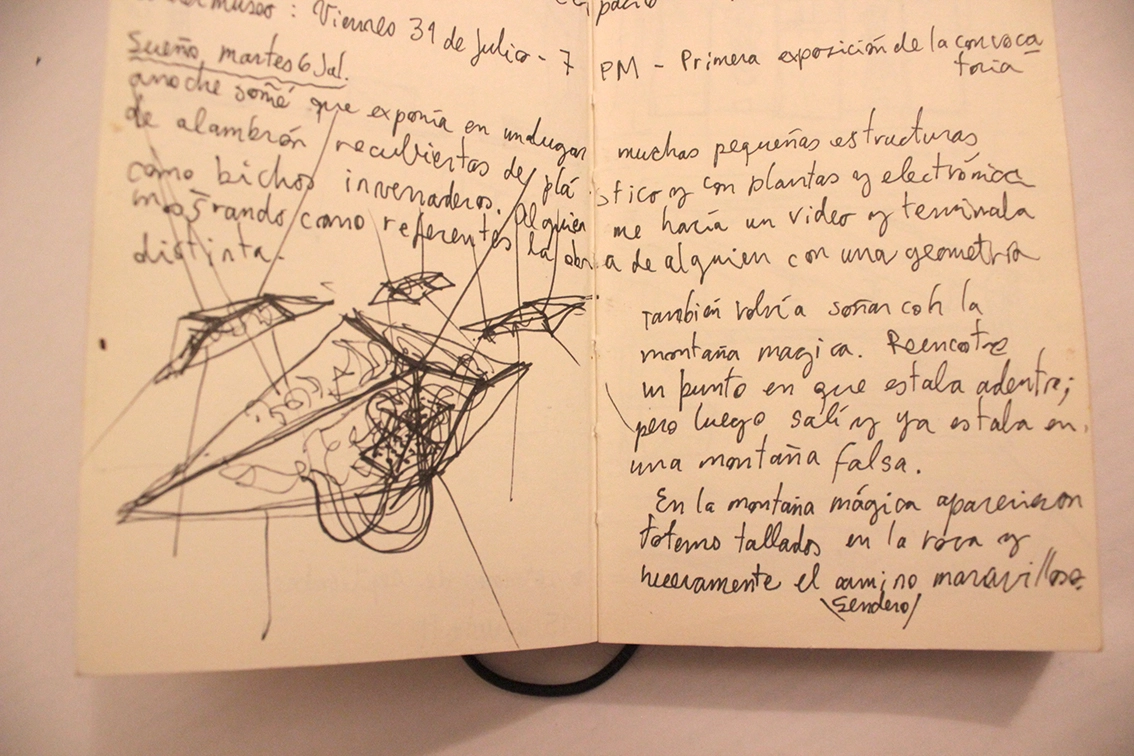 museo : Viernes 31 de Julio - 7 PM - Primera exposición de la convoca
toria
Sueño, martes 6 Jul.
anoche soñé que exponía en un lugar muchas pequeñas estructuras
de alambrón recubiertas de plástico y con plantas y electrónica
como bichos invernaderos. Alguien me hacía un video y terminaba
mostrando como referentes la obra de alguien con una geometría
distinta.
También volvía a soñar con la
montaña magica. Reencontre
un punto en que estaba adentro;
pero luego salí y ya estaba en
una montaña falsa.
En la montaña mágica aparecieron
totems tallados en la roca y
nuevamente el camino maravilloso
(sendero)